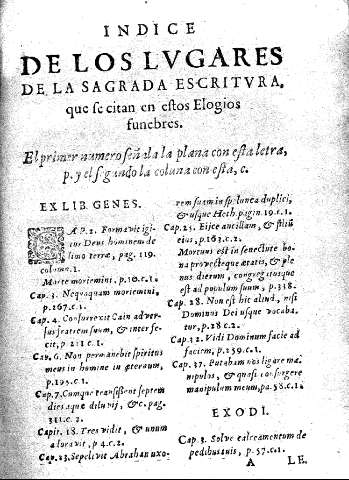 INDICE
DE LOS LVGARES
DE LA SAGRADA ESCRITVRA,
que se citan en estos Elogios
funebres.
El primer numero señala la plana con esta letra,
p. y el segundo la coluna con esta, c.
EX LIB. GENES.
CAP. 2. Formavit igi
tur Deus hominem de
limo terræ, pag. 119.
column. 1.
Morte moriemini, p. 10. c. 1.
Cap. 3. Nequaquam moriemini,
p. 267. c. 1.
Cap. 4. Consurrexit Cain adver-
sus fratrem suum, & interfe-
cit, p. 211 c. 1.
Cap. 6. Non permanebit spiritus
meus in homine in æternum,
p. 195. c. 1.
Cap. 7. Cumque transissent septem
dies aquæ diluvij, &c. pag.
311. c. 2.
Capit. 18. Tres vidit, & unum
adoravit, p 4. c. 2.
Cap. 23. Sepelivit Abraham uxo-
rem suam in spelunca duplici,
& usque Heth. pagin. 19. c. 1.
Cap. 25. Eijce ancillam, & filiũ
eius, p. 163. c. 2.
Mortuus est in senectute bo-
na provectæque ætatis, & ple
nus dierum, congregatusque
est ad populum suum, p. 318.
Cap. 28. Non est hic aliud, nisi
Dominus Dei usque vocaba
tur, p. 28 c. 2.
Cap. 32. Vidi Dominum facie ad
faciem, p. 259. c. 1.
Cap. 37. Putabam nos ligare ma
nipulos, & quasi consurgere
manipulum meum, pa. 58. c. 1.
EXODI.
Cap. 3. Solve calceamentum de
pedibus tuis, p. 57. c. 1.
A LE.